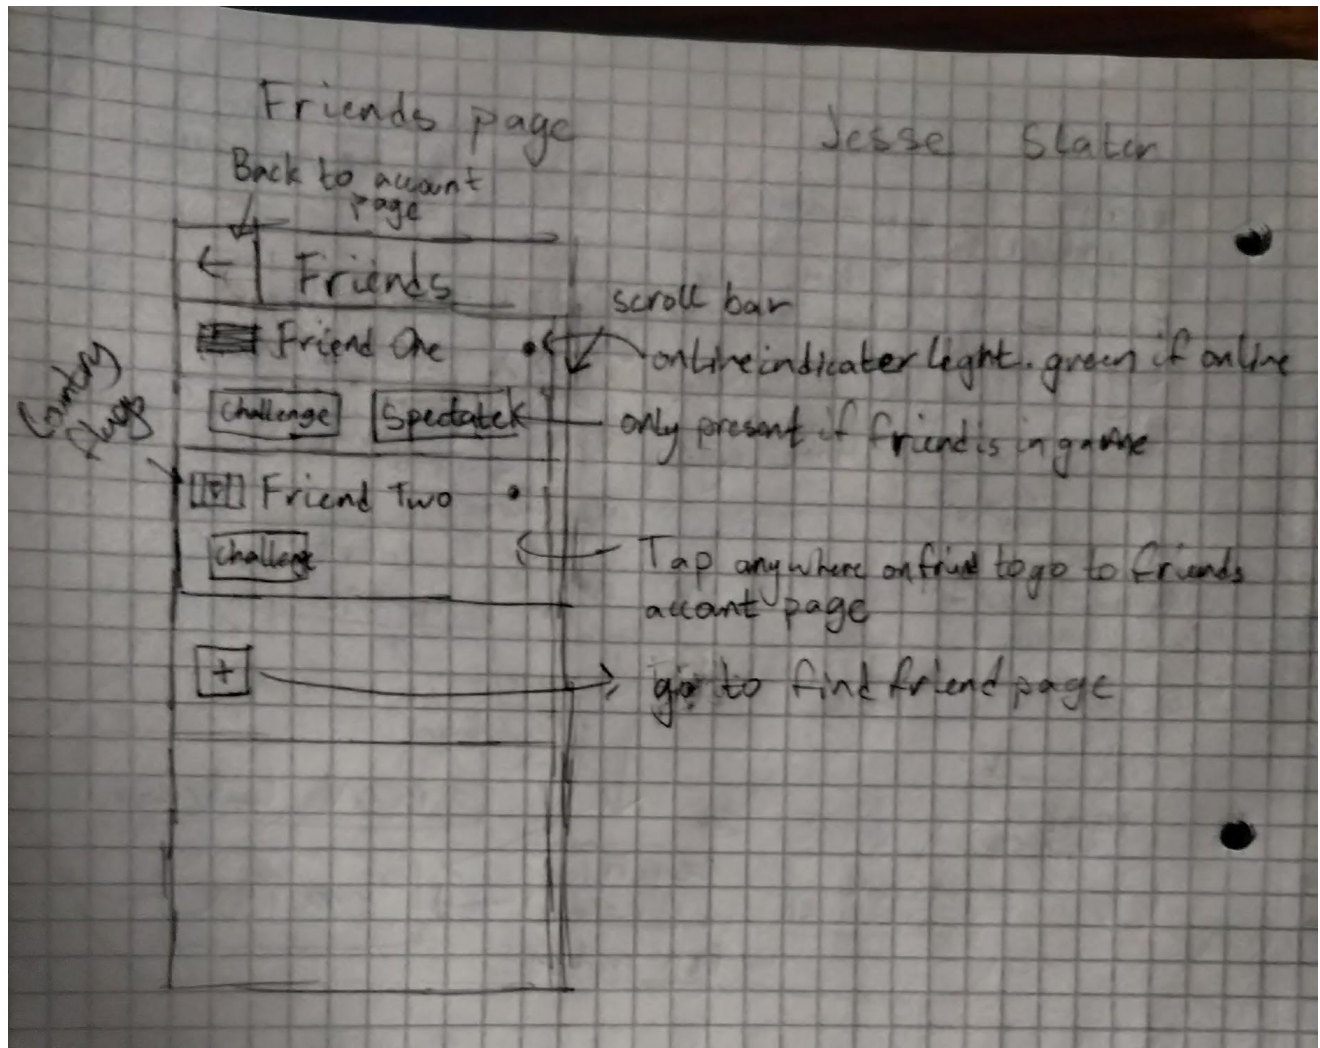 Friends page
Jesse Slater
Back to account
page
←
Friends
scroll bar
Friend One
online indicater light. green if online
Country
flags
Challenge
Spectate
only present if friend is in game
Friend Two
Challenge
Tap anywhere on friend to go to friends
account page
+
go to find friend page